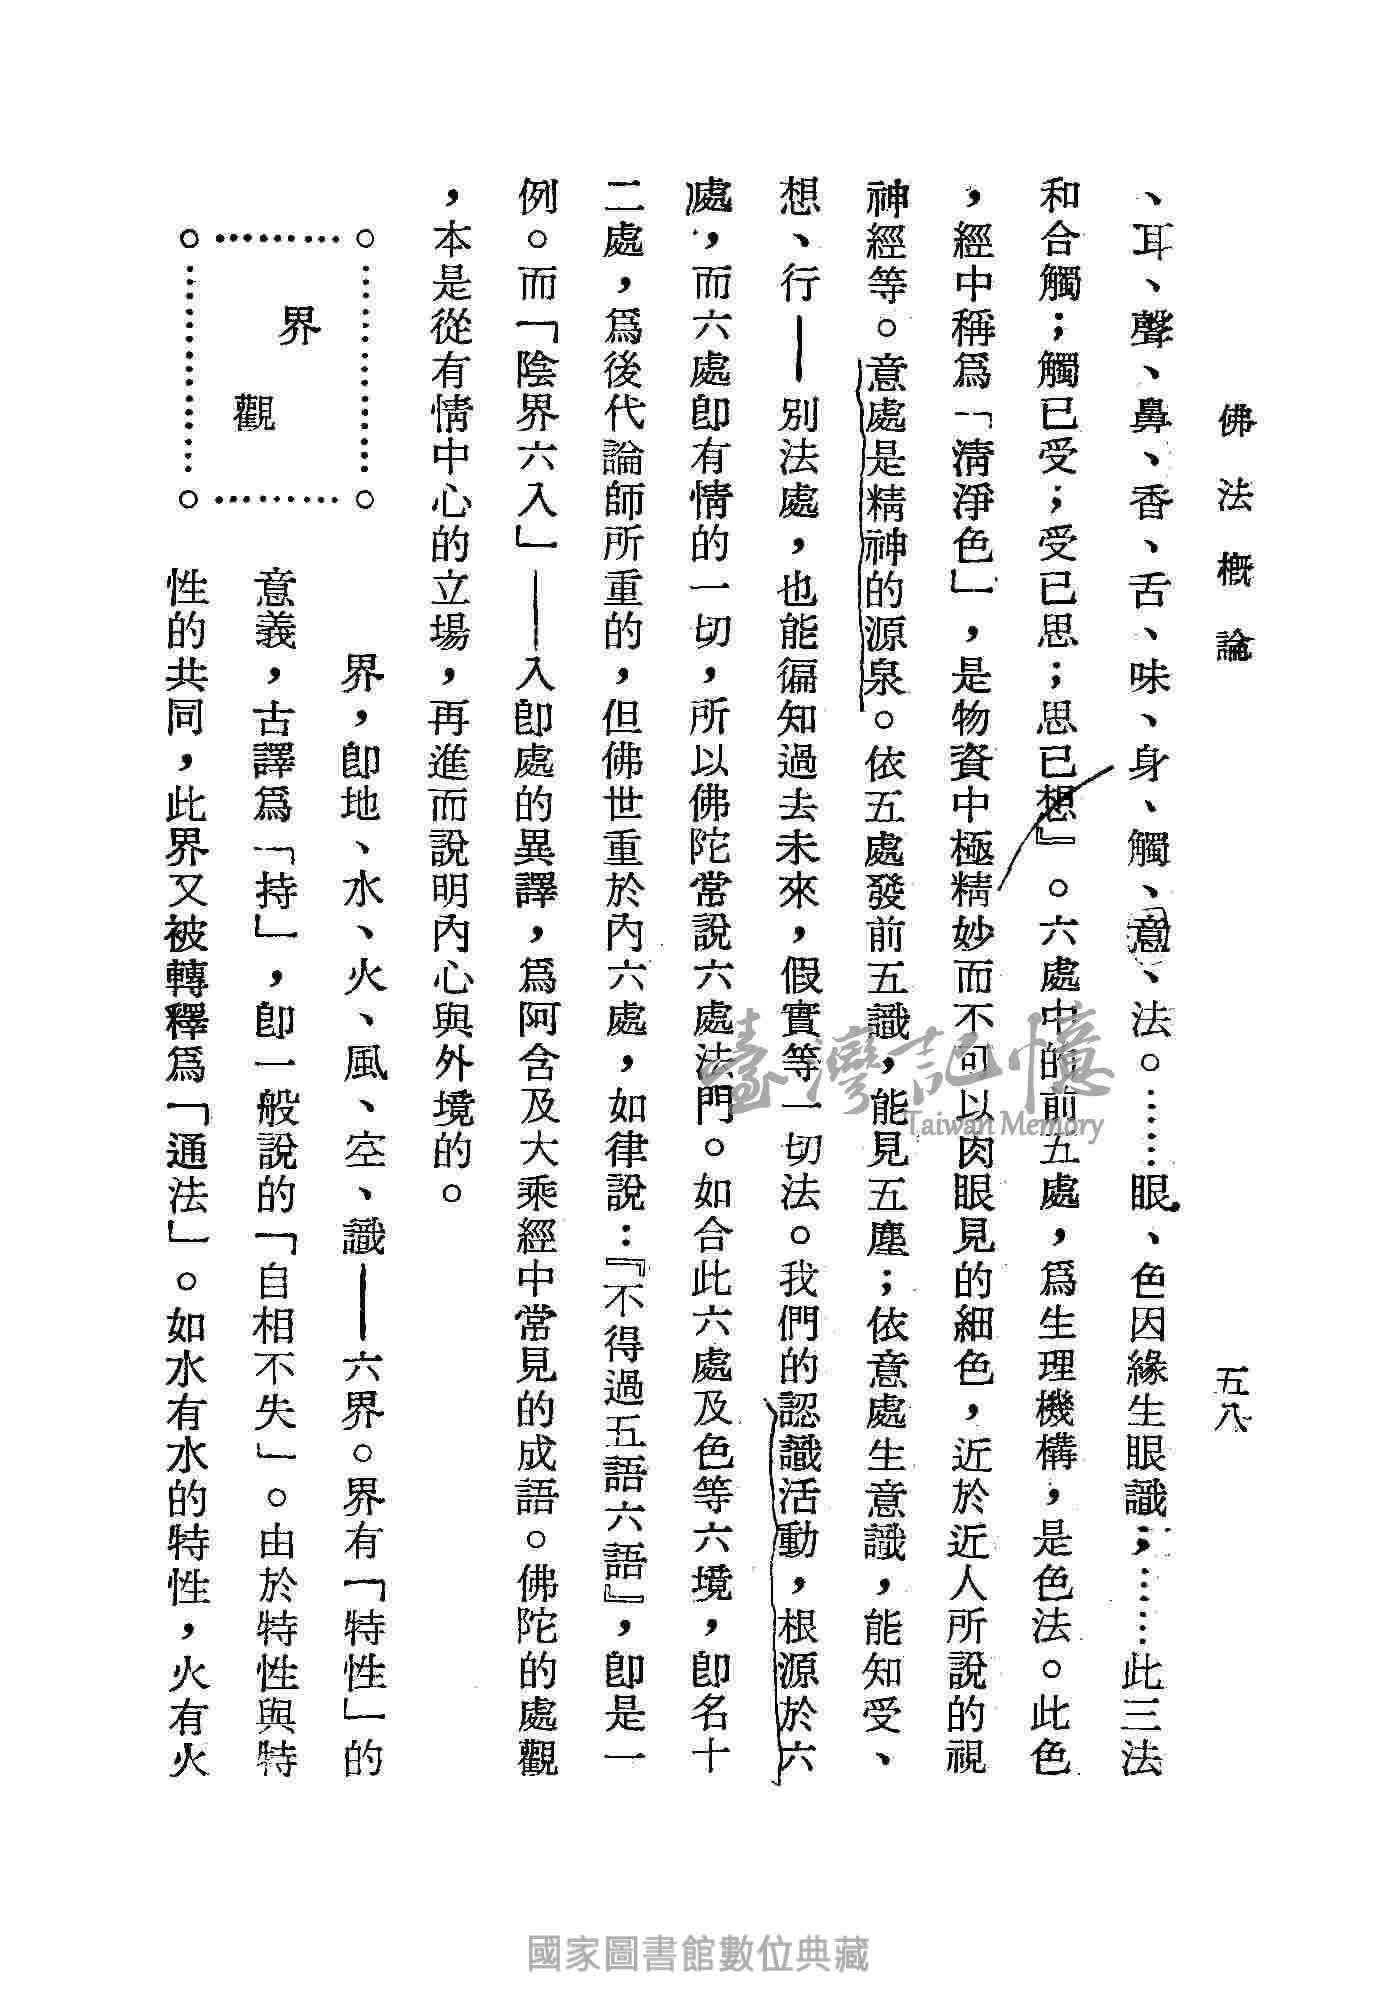 佛法概論
五八
、耳、聲、鼻、香、舌、味、身、觸、意、法。……眼、色因緣生眼識；……此三法
和合觸；觸已受；受已思；思已想』。六處中的前五處，爲生理機構，是色法。此色
，經中稱爲「清淨色」，是物資中極精妙而不可以肉眼見的細色，近於近人所說的視
神經等。意處是精神的源泉。依五處發前五識，能見五塵；依意處生意識，能知受、
想、行——別法處，也能徧知過去未來，假實等一切法。我們的認識活動，根源於六
處，而六處卽有情的一切，所以佛陀常說六處法門。如合此六處及色等六境，卽名十
二處，爲後代論師所重的，但佛世重於內六處，如律說：『不得過五語六語』，卽是一
例。而「陰界六入」——入卽處的異譯，爲阿含及大乘經中常見的成語。佛陀的處觀
，本是從有情中心的立場，再進而說明內心與外境的。
界觀
界，卽地、水、火、風、空、識——六界。界有「特性」的
意義，古譯爲「持」，卽一般說的「自相不失」。由於特性與特
性的共同，此界又被轉釋爲「通法」。如水有水的特性，火有火
臺灣記憶
Taiwan Memory
國家圖書館數位典藏